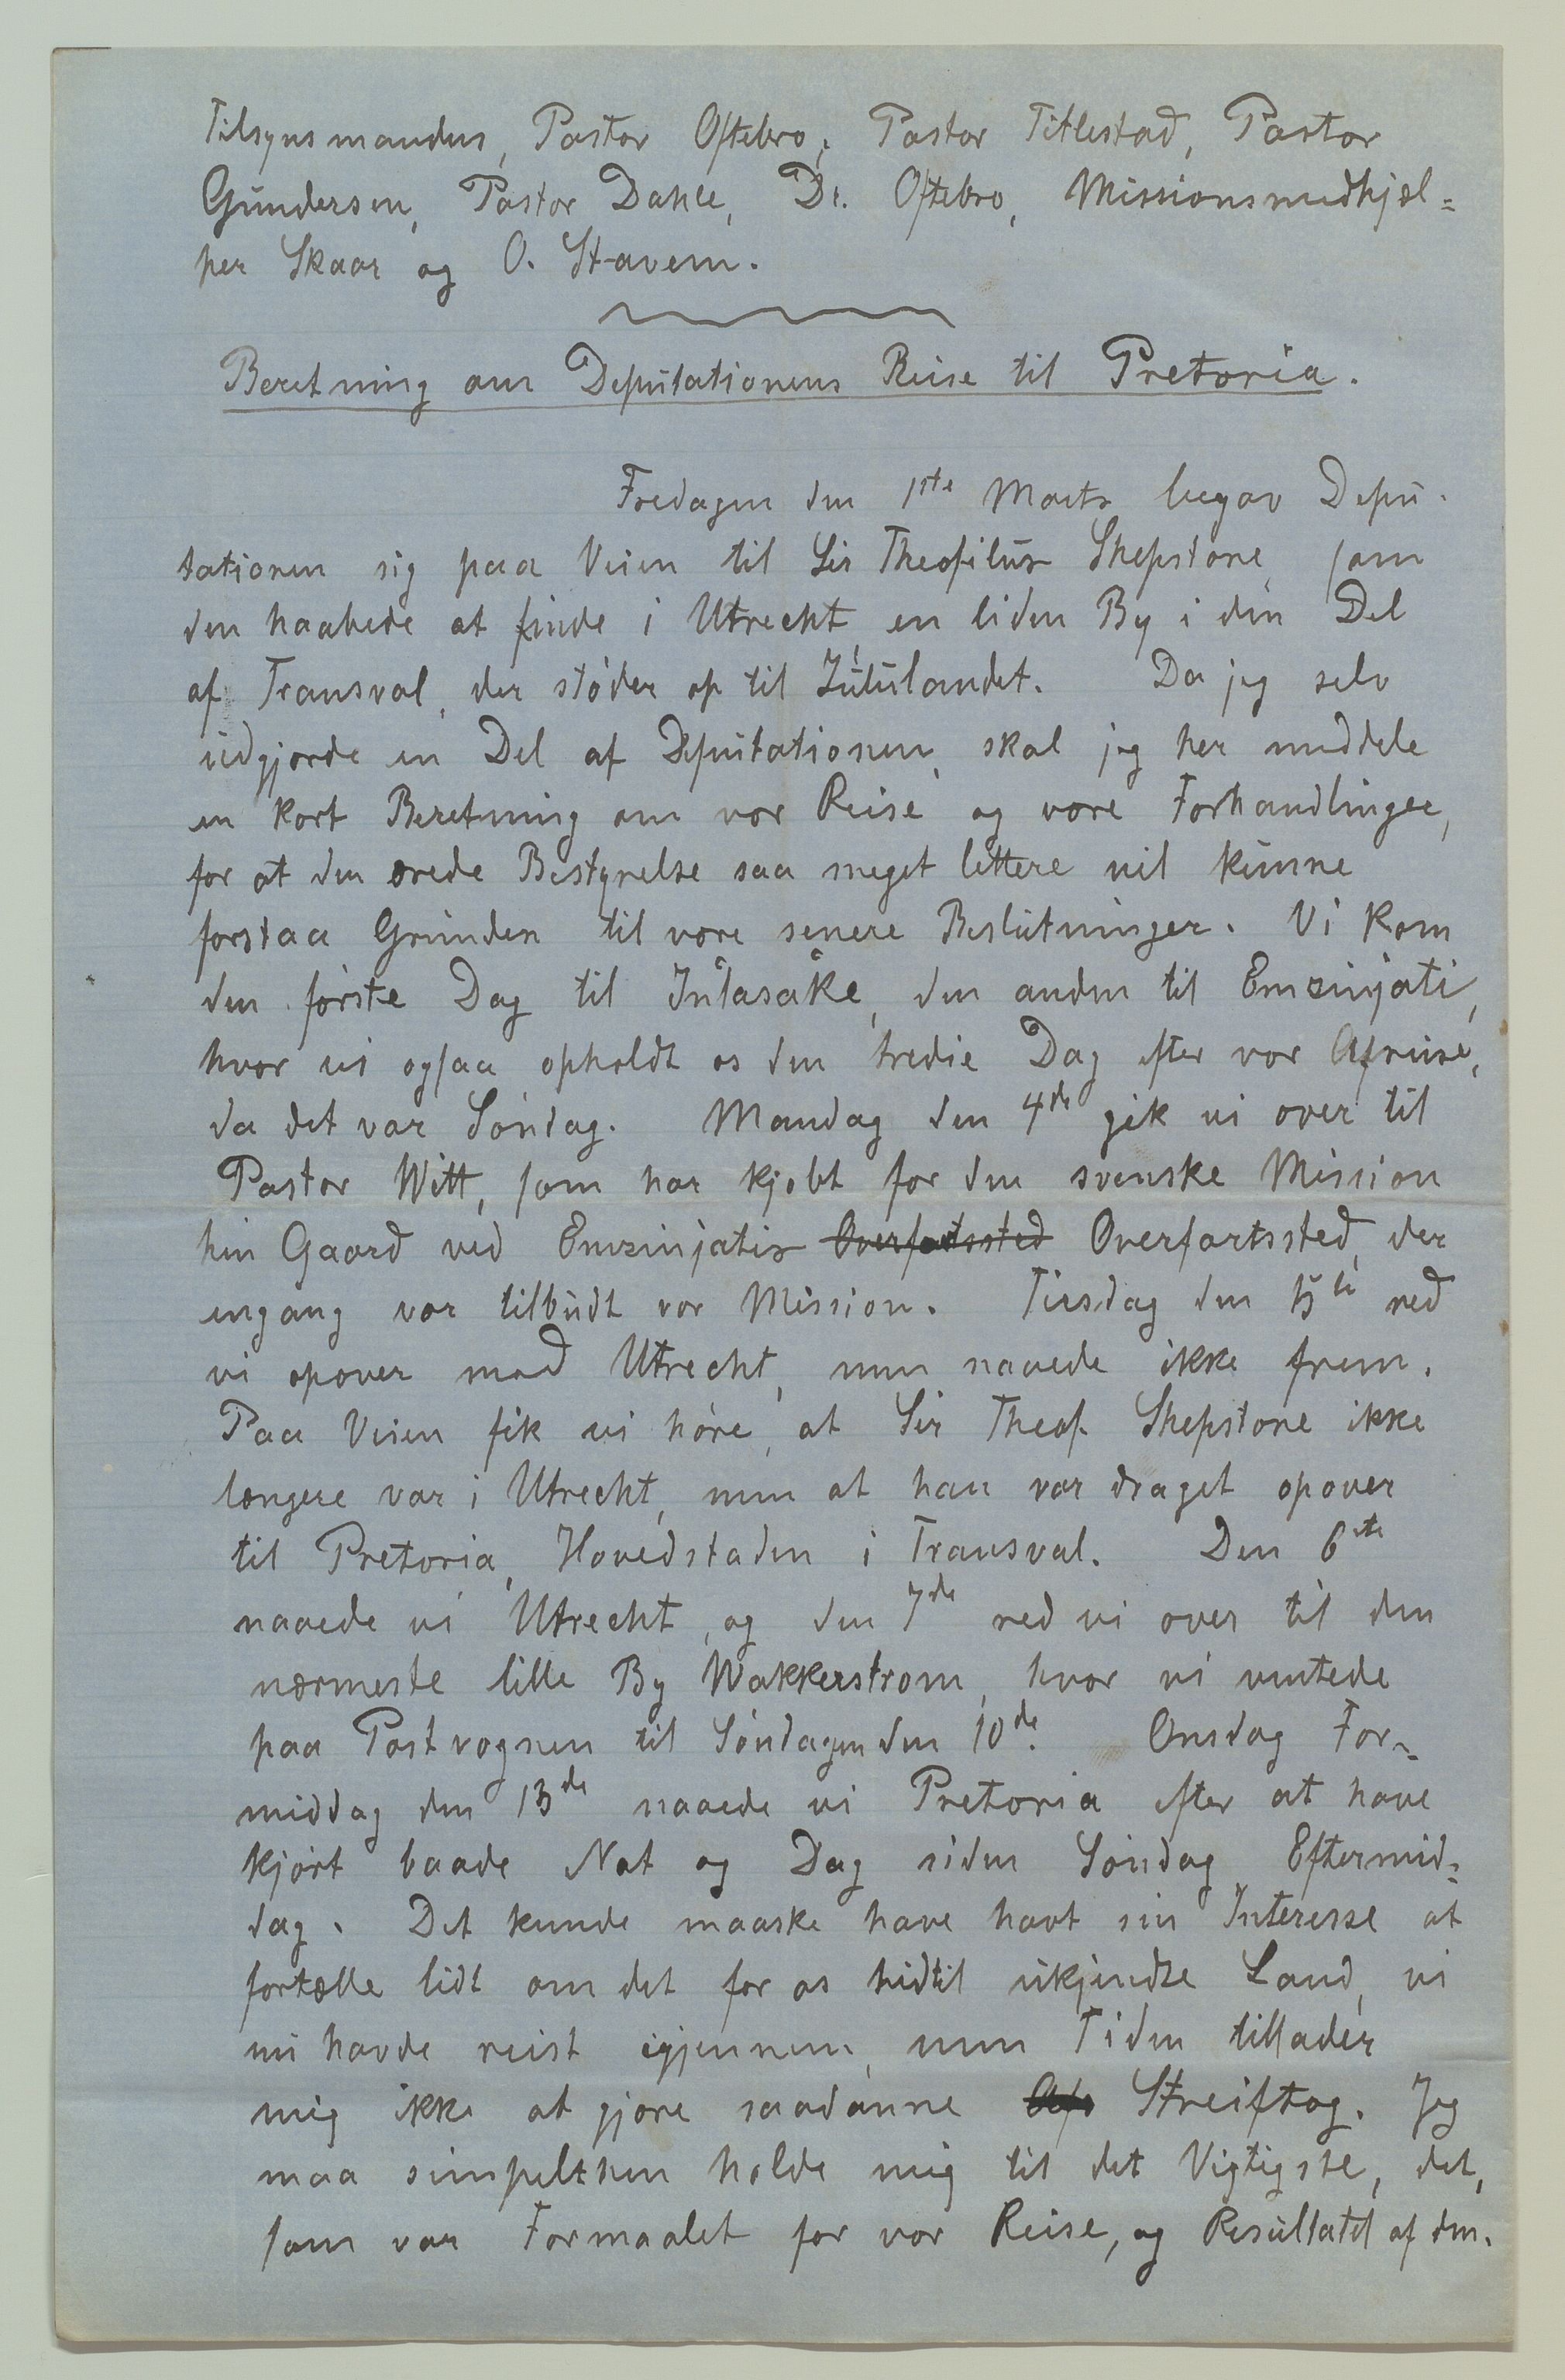 Tilsynsmanden, Pastor Oftebro, Pastor Titlestad, Pastor
Gundersen, Pastor Dahle, Dr. Oftebro, Missionsmedhjæl=
per Skaar og O. Stavem.
Beretning om Deputationens Reise til Pretoria.
Fredagen den 1ste Marts begav Depu-
tationen sig paa Veien til Sir Theofilus Shepstone, som
den haabede at finde i Utrecht, en liden By i den Del
af Transval, der støder op til Zululandet. Da jeg selv
udgjorde en Del af Deputationen, skal jeg her meddele
en kort Beretning om vor Reise og vore Forhandlinger,
for at den ærede Bestyrelse saa meget lettere vil kunne
forstaa Grunden til vore senere Beslutninger. Vi kom
den første Dag til Inlasake, den anden til Emzinjati,
hvor vi ogsaa opholdt os den tredie Dag efter vor Afreise,
da det var Søndag. Mandag den 4de gik vi over til
Pastor Witt, som har kjøbt for den svenske Mission
hin Gaard ved Emzinjatis Overfartssted Overfartssted, der
engang var tilbudt vor Mission. Tirsdag den 5te red
vi opover mod Utrecht, men naaede ikke frem.
Paa Veien fik vi høre, at Sir Theof. Shepstone ikke
længere var i Utrecht, men at han var draget opover
til Pretoria, Hovedstaden i Transval. Den 6te
naaede vi Utrecht, og den 7de red vi over til den
nærmeste lille By Wakkerstrom, hvor vi ventede
paa Postvognen til Søndagen den 10de. Onsdag For=
middag den 13de naaede vi Pretoria efter at have
kjørt baade Nat og Dag siden Søndag Eftermid=
dag. Det kunde maaske have havt sin Interesse at
fortælle lidt om det for os hidtil ukjendte Land, vi
nu havde reist igjennem, men Tiden tillader
mig ikke at gjøre saadanne Streiftog. Jeg
maa simpelthen holde mig til det Vigtigste, det,
som var Formaalet for vor Reise, og Resultatet af den.